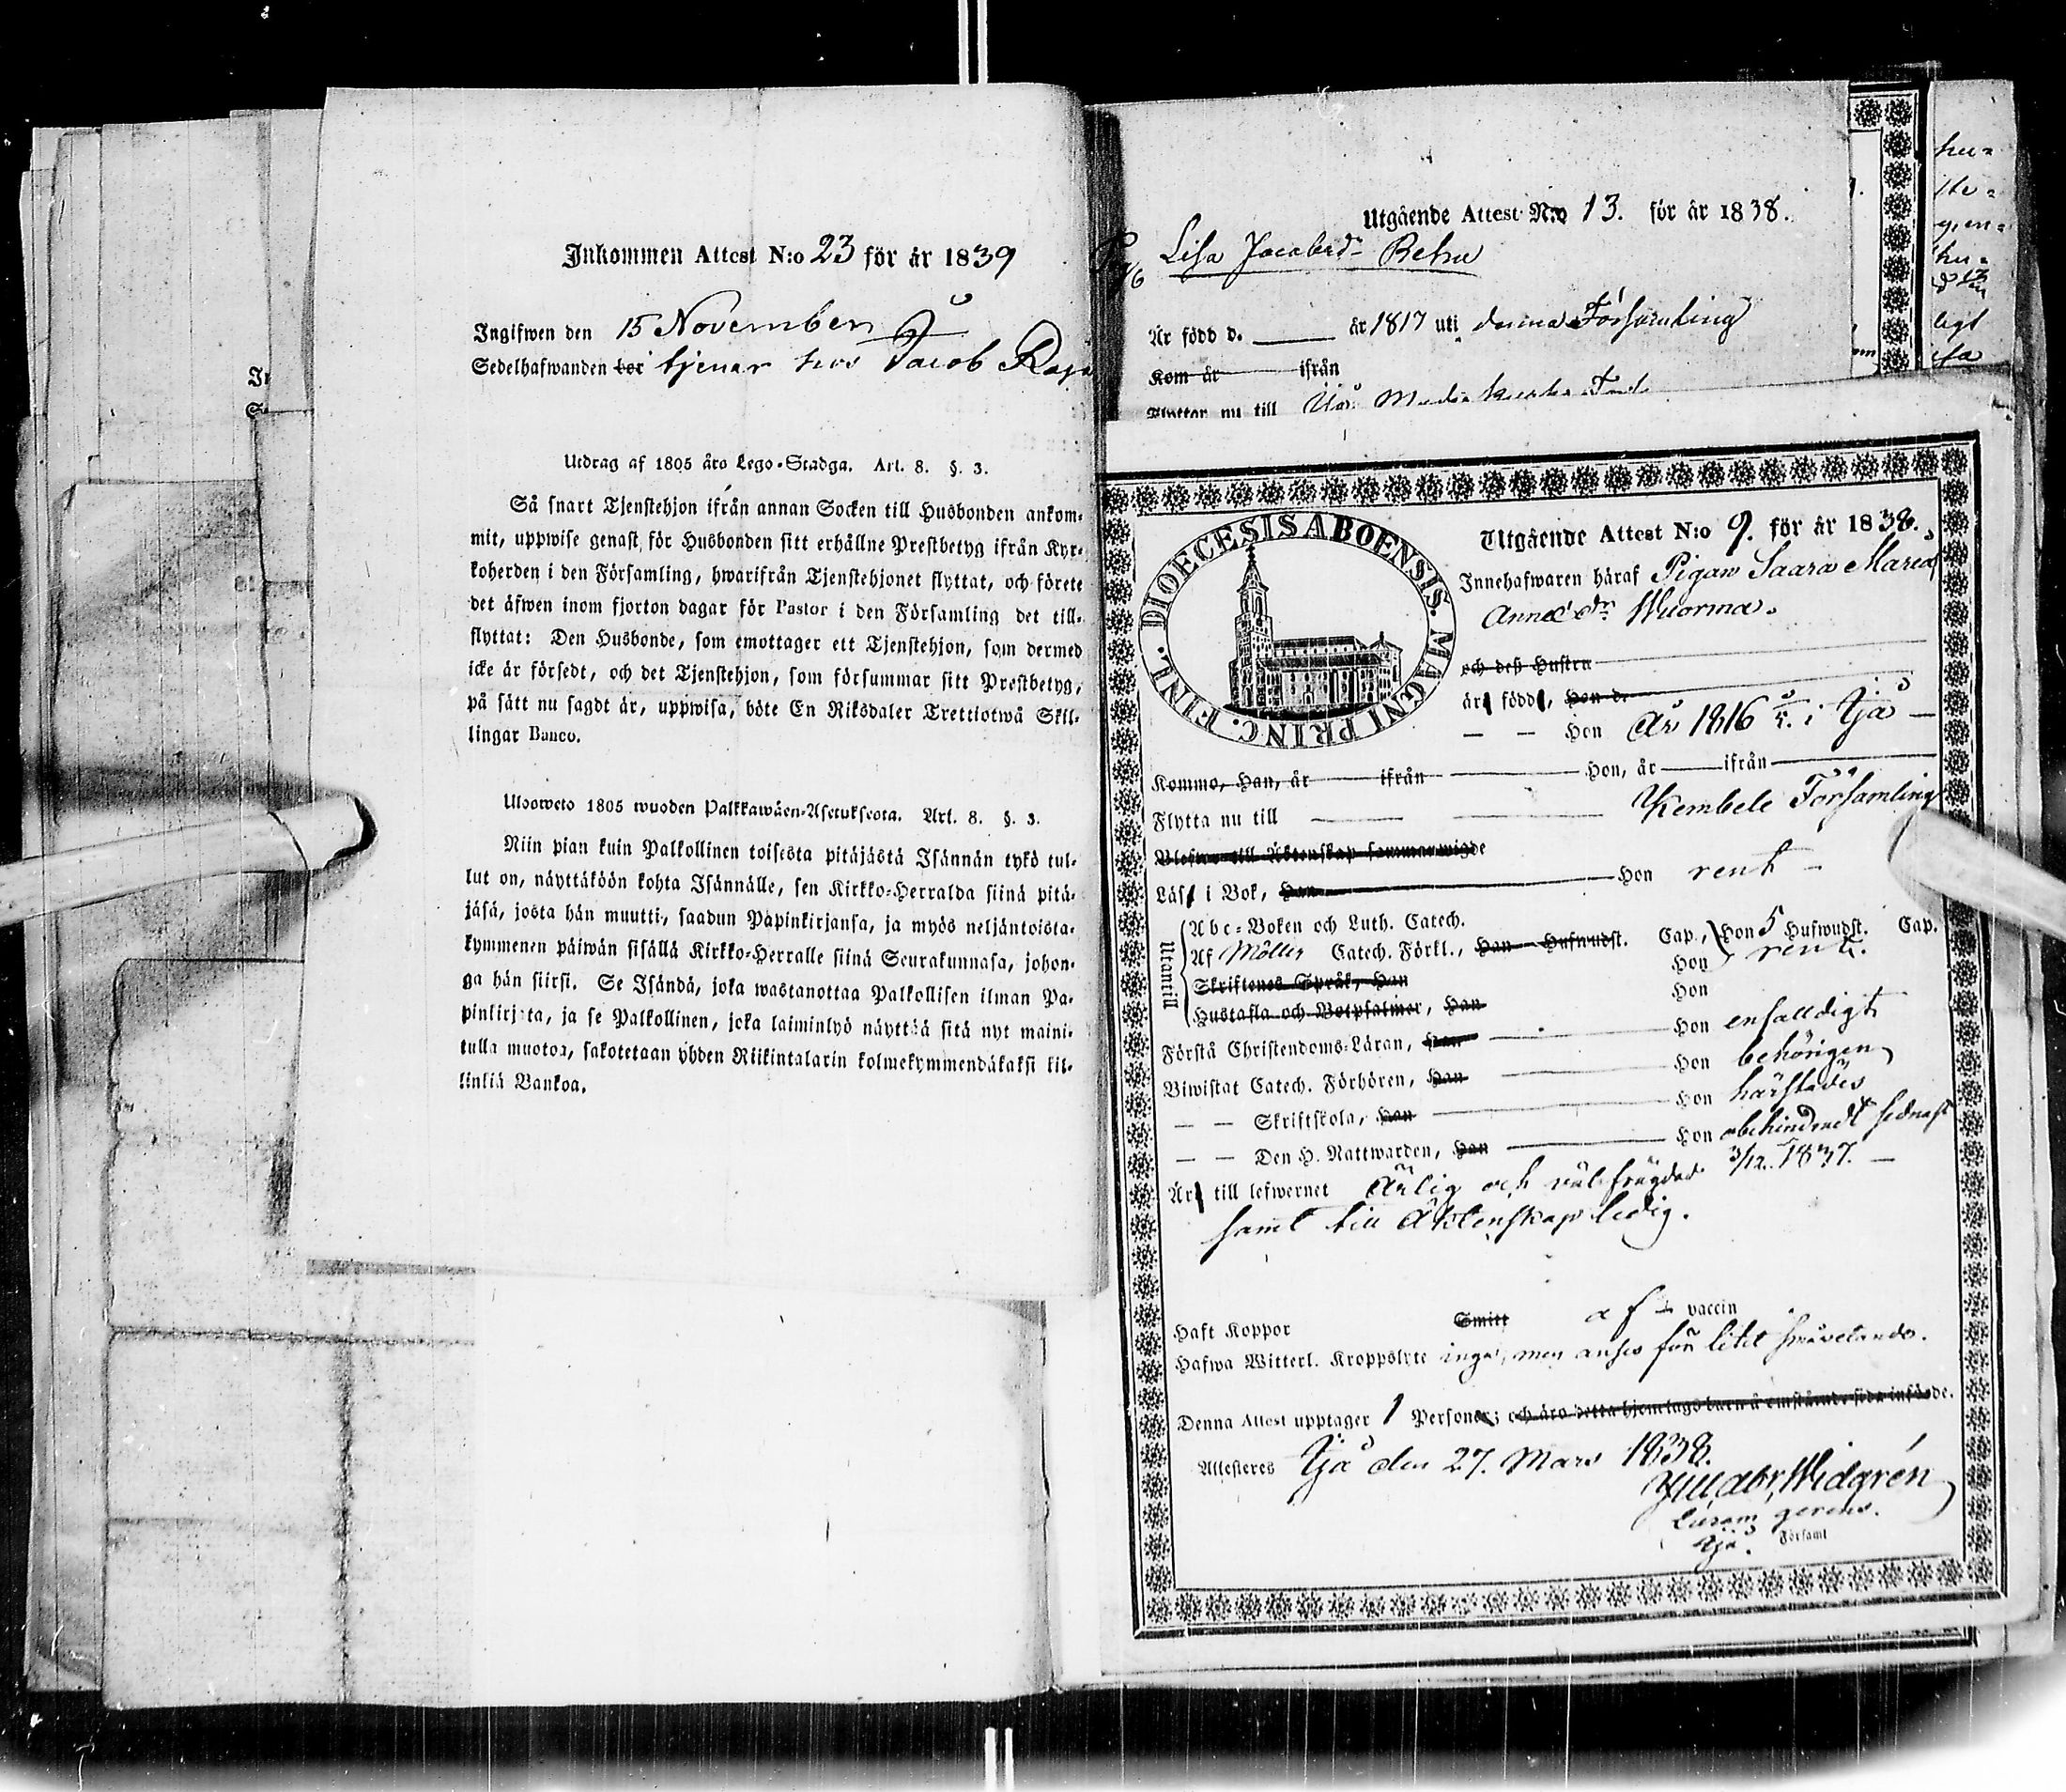 Inkommen Attest N:o 23 för år 1839
Ingifwen den 15 November
Sedelhafwanden bor tjenar hos Jacob
Utdrag af 1805 års Lego-Stadga. Art. 8. §. 3.
Så snart Tjenstehjon ifrån annan Socken till Husbonden ankom-
mit, uppwise genast för Husbonden sitt erhållne Prestbetyg ifrån Kyr-
koherden i den Församling, hwarifrån Tjenstehjonet flyttat, och förete
det äfwen inom fjorton dagar för Pastor i den Församling det till-
flyttat: Den Husbonde, som emottager ett Tjenstehjon, som dermed
icke är försedt, och det Tjenstehjon, som försummar sitt Prestbetyg,
på sätt nu sagdt är, uppwisa, böte En Riksdaler Trettiotwå Skil-
lingar Banco.
Ulosweto 1805 wuoden Palkkawäen-Asetuksesta. Art. 8. §. 3.
Niin pian kuin Palkollinen toisesta pitäjästä Isännän tykö tul-
lut on, näyttäköön kohta Isännälle, sen Kirkko-Herralda siinä pitä-
jäsä, josta hän muutti, saadun Papinkirjansa, ja myös neljäntoista-
kymmenen päiwän sisällä Kirkko-Herralle siinä Seurakunnasa, johon-
ga hän siirsi. Se Isändä, joka wastanottaa Palkollisen ilman Pa-
pinkirjata, ja se Palkollinen, joka laiminlyö näyttää sitä nyt maini-
tulla muotoa, sakotetaan yhden Riikintalarin kolmekymmendäkaksi kil-
linkiä Bankoa.
Utgående Attest N:o 13. för år 1838.
Lisa Jacobsdr
Är född d. år 1817 uti denna Församling
Kom år ifrån
Flyttar nu till
DIOECESIS ABOENSIS. MAGNI PRINC. FINL.
Utgående Attest N:o 9. för år 1838.
Innehafwaren häraf Pigan Saara Maria
Anna dr Wuorma.
och deß Hustru
är född, Hon d.
— — Hon År 1816 i Ijå —
Komme, Han, år ifrån Hon, år ifrån
Flytta nu till Kembele Församling
Blefwe till Äktenskap sammanwigde
Läst i Bok, Han Hon rent —
Utantill
Abc-Boken och Luth. Catech.
Af Möllers Catech. Förkl., Han Hufwudst. Cap., Hon 5 Hufwudst. Cap.
Skriftenes Språk, Han Hon rent.
Hustafla och Botpsalmer, Han Hon
Förstå Christendoms-Läran, Han Hon enfalldigt
Biwistat Catech. Förhören, Han Hon behörigen
— — Skriftskola, Han Hon härstädes
— — Den H. Nattwarden, Han Hon obehindradt sednast
3/12. 1837. —
Är till lefwernet Ärlig och välfrägdad
samt till Äktenskap ledig.
Haft Koppor Smitt af vaccin
Hafwa Witterl. Kroppslyte inga, men anses för litet
Denna Attest upptager 1 Personer; och äro detta hjonelags barn å omstående sida införde.
Attesteras Ijå den 27. Mars 1838.
Widgrén
Curam gerens.
Ijå. Församl